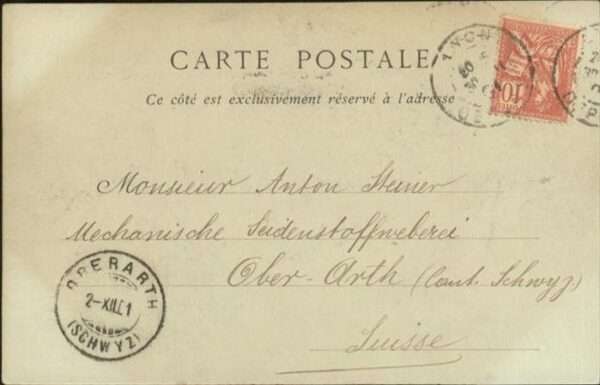 CARTE POSTALE
Ce côté est exclusivement réservé à l'adresse
10
Monsieur Anton Steiner
Mechanische Seidenstoffweberei
Ober-Arth (Cant. Schwyz.)
Suisse
OBERARTH
2-XII.01
(SCHWYZ)